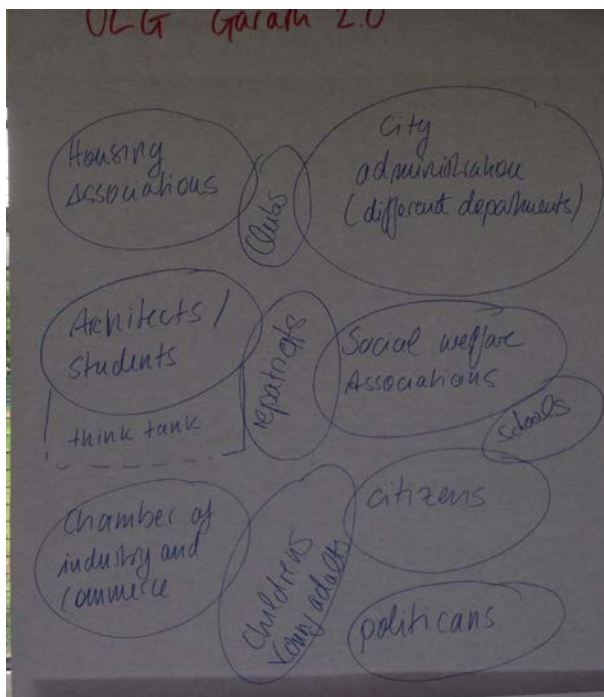 ULG Garath 2.0
Housing
Associations
Clubs
City
administration
(different departments)
Architects /
Students
think tank
repatriots
Social welfare
Associations
schools
Chamber of
industry and
commerce
Childrens
Young adults
citizens
politicans